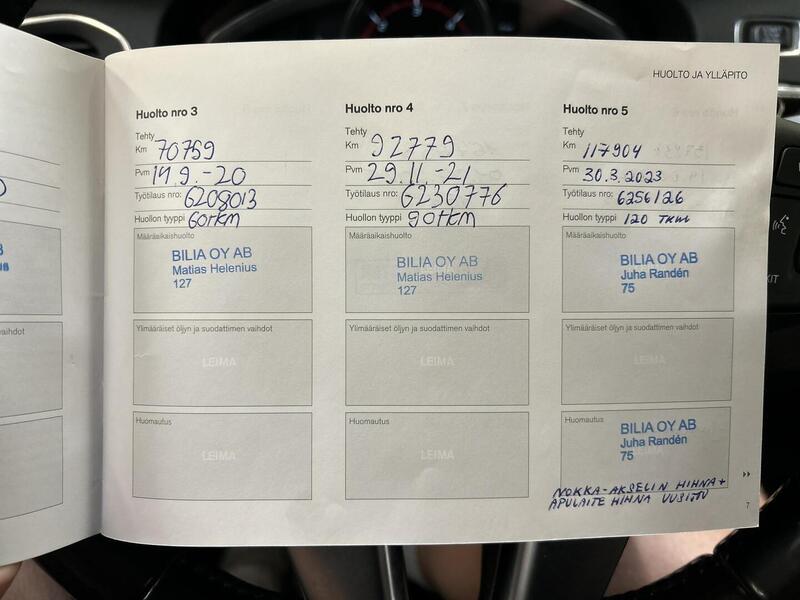 HUOLTO JA YLLÄPITO
Huolto nro 3
Tehty
Km 70759
Pvm 14.9.-20
Työtilaus nro: 6208013
Huollon tyyppi 60tkm
Määräaikaishuolto
BILIA OY AB
Matias Helenius
127
Ylimääräiset öljyn ja suodattimen vaihdot
LEIMA
Huomautus
LEIMA
Huolto nro 4
Tehty
Km 92779
Pvm 29.11.-21
Työtilaus nro: 6230776
Huollon tyyppi 90tkm
Määräaikaishuolto
BILIA OY AB
Matias Helenius
127
Ylimääräiset öljyn ja suodattimen vaihdot
LEIMA
Huomautus
LEIMA
Huolto nro 5
Tehty
Km 117904
Pvm 30.3.2023
Työtilaus nro: 6256126
Huollon tyyppi 120 TKM
Määräaikaishuolto
BILIA OY AB
Juha Randén
75
Ylimääräiset öljyn ja suodattimen vaihdot
LEIMA
Huomautus
BILIA OY AB
Juha Randén
75
LEIMA
NOKKA-AKSELIN HIHNA +
APULAITE HIHNA UUSITTU
7
vaihdot